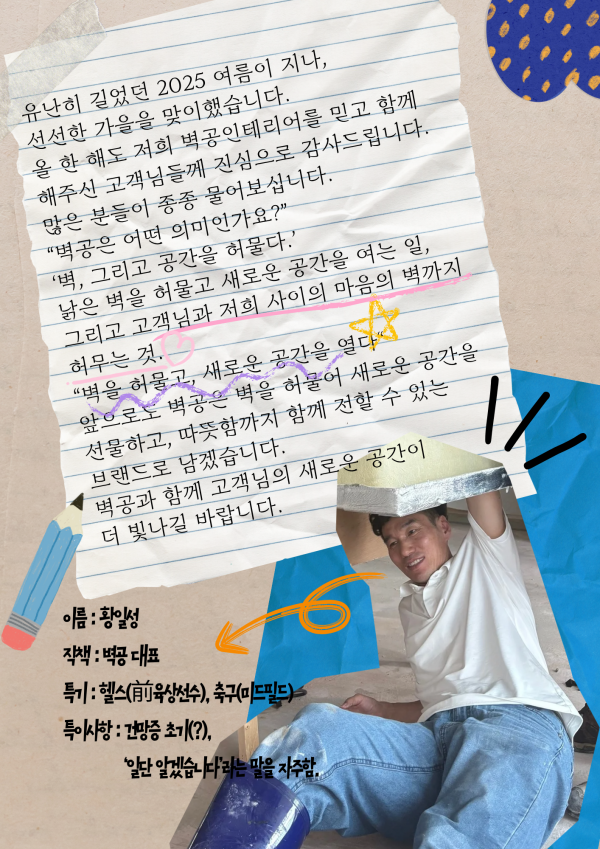 유난히 길었던 2025 여름이 지나,
선선한 가을을 맞이했습니다.
올 한 해도 저희 벽공인테리어를 믿고 함께
해주신 고객님들께 진심으로 감사드립니다.
많은 분들이 종종 물어보십니다.
“벽공은 어떤 의미인가요?”
‘벽, 그리고 공간을 허물다.’
낡은 벽을 허물고 새로운 공간을 여는 일,
그리고 고객님과 저희 사이의 마음의 벽까지
허무는 것.
“벽을 허물고, 새로운 공간을 열다“
앞으로도 벽공은 벽을 허물어 새로운 공간을
선물하고, 따뜻함까지 함께 전할 수 있는
브랜드로 남겠습니다.
벽공과 함께 고객님의 새로운 공간이
더 빛나길 바랍니다.
이름 : 황일성
직책 : 벽공 대표
특기 : 헬스(前육상선수), 축구(미드필드)
특이사항 : 건망증 초기(?),
‘일단 알겠습니다’라는 말을 자주함.